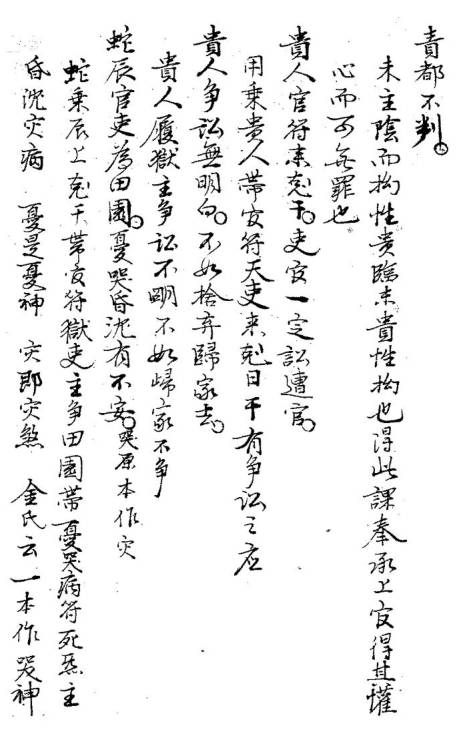 責都不判。
未主陰而拘性貴臨未貴性拘也得此課奉承上官得其懽
心而可無罪也
貴人官符来尅干。吏官一定訟遭官。
用乗貴人帶官符天吏来尅日干有争訟之应
貴人争訟無明白。不如捨弃歸家去。
貴人履獄主争訟不明不如歸家不争
蛇辰官吏為田園。憂哭昏沈有不安。哭原本作灾
蛇乗辰上尅干帶官符獄吏主争田園帶憂哭病符死炁主
昏沈灾病 憂是憂神 灾即灾煞 金氏云一本作哭神